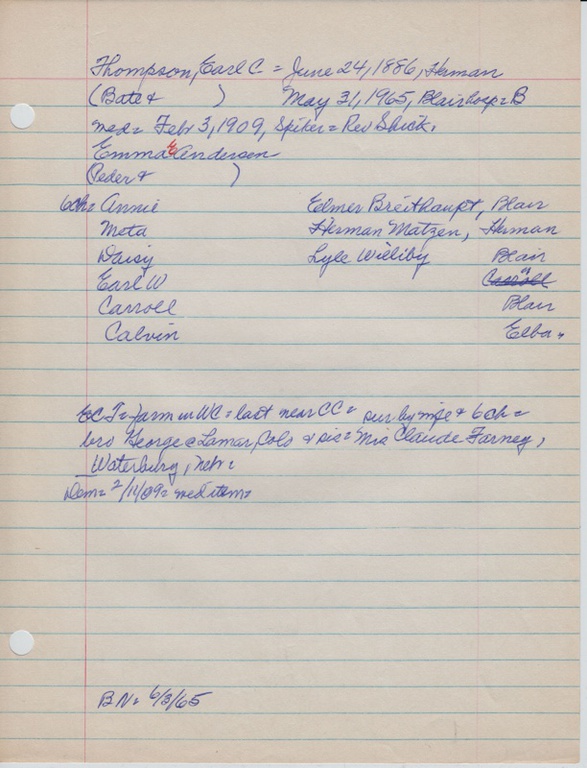 Thompson, Earl C. = June 24, 1886, Herman
(Bate &          ) May 31, 1965, Blair hosp = B
med = Febr 3, 1909, Spiker = Rev Shick.
Emma E Andersen
(Peder &          )
6ch = Annie Elmer Breithaupt, Blair
Meta Herman Matzen, Herman
Daisy Lyle Williby Blair
Earl W "
Carroll Blair
Calvin Elba.
EC T = farm in WC = last near CC = sur by wife & 6 ch =
bro George @ Lamar, Colo & sis = Mrs Claude Farney,
Waterbury, Nebr =
Dem = 2/11/09 = wed item =
BN = 6/3/65